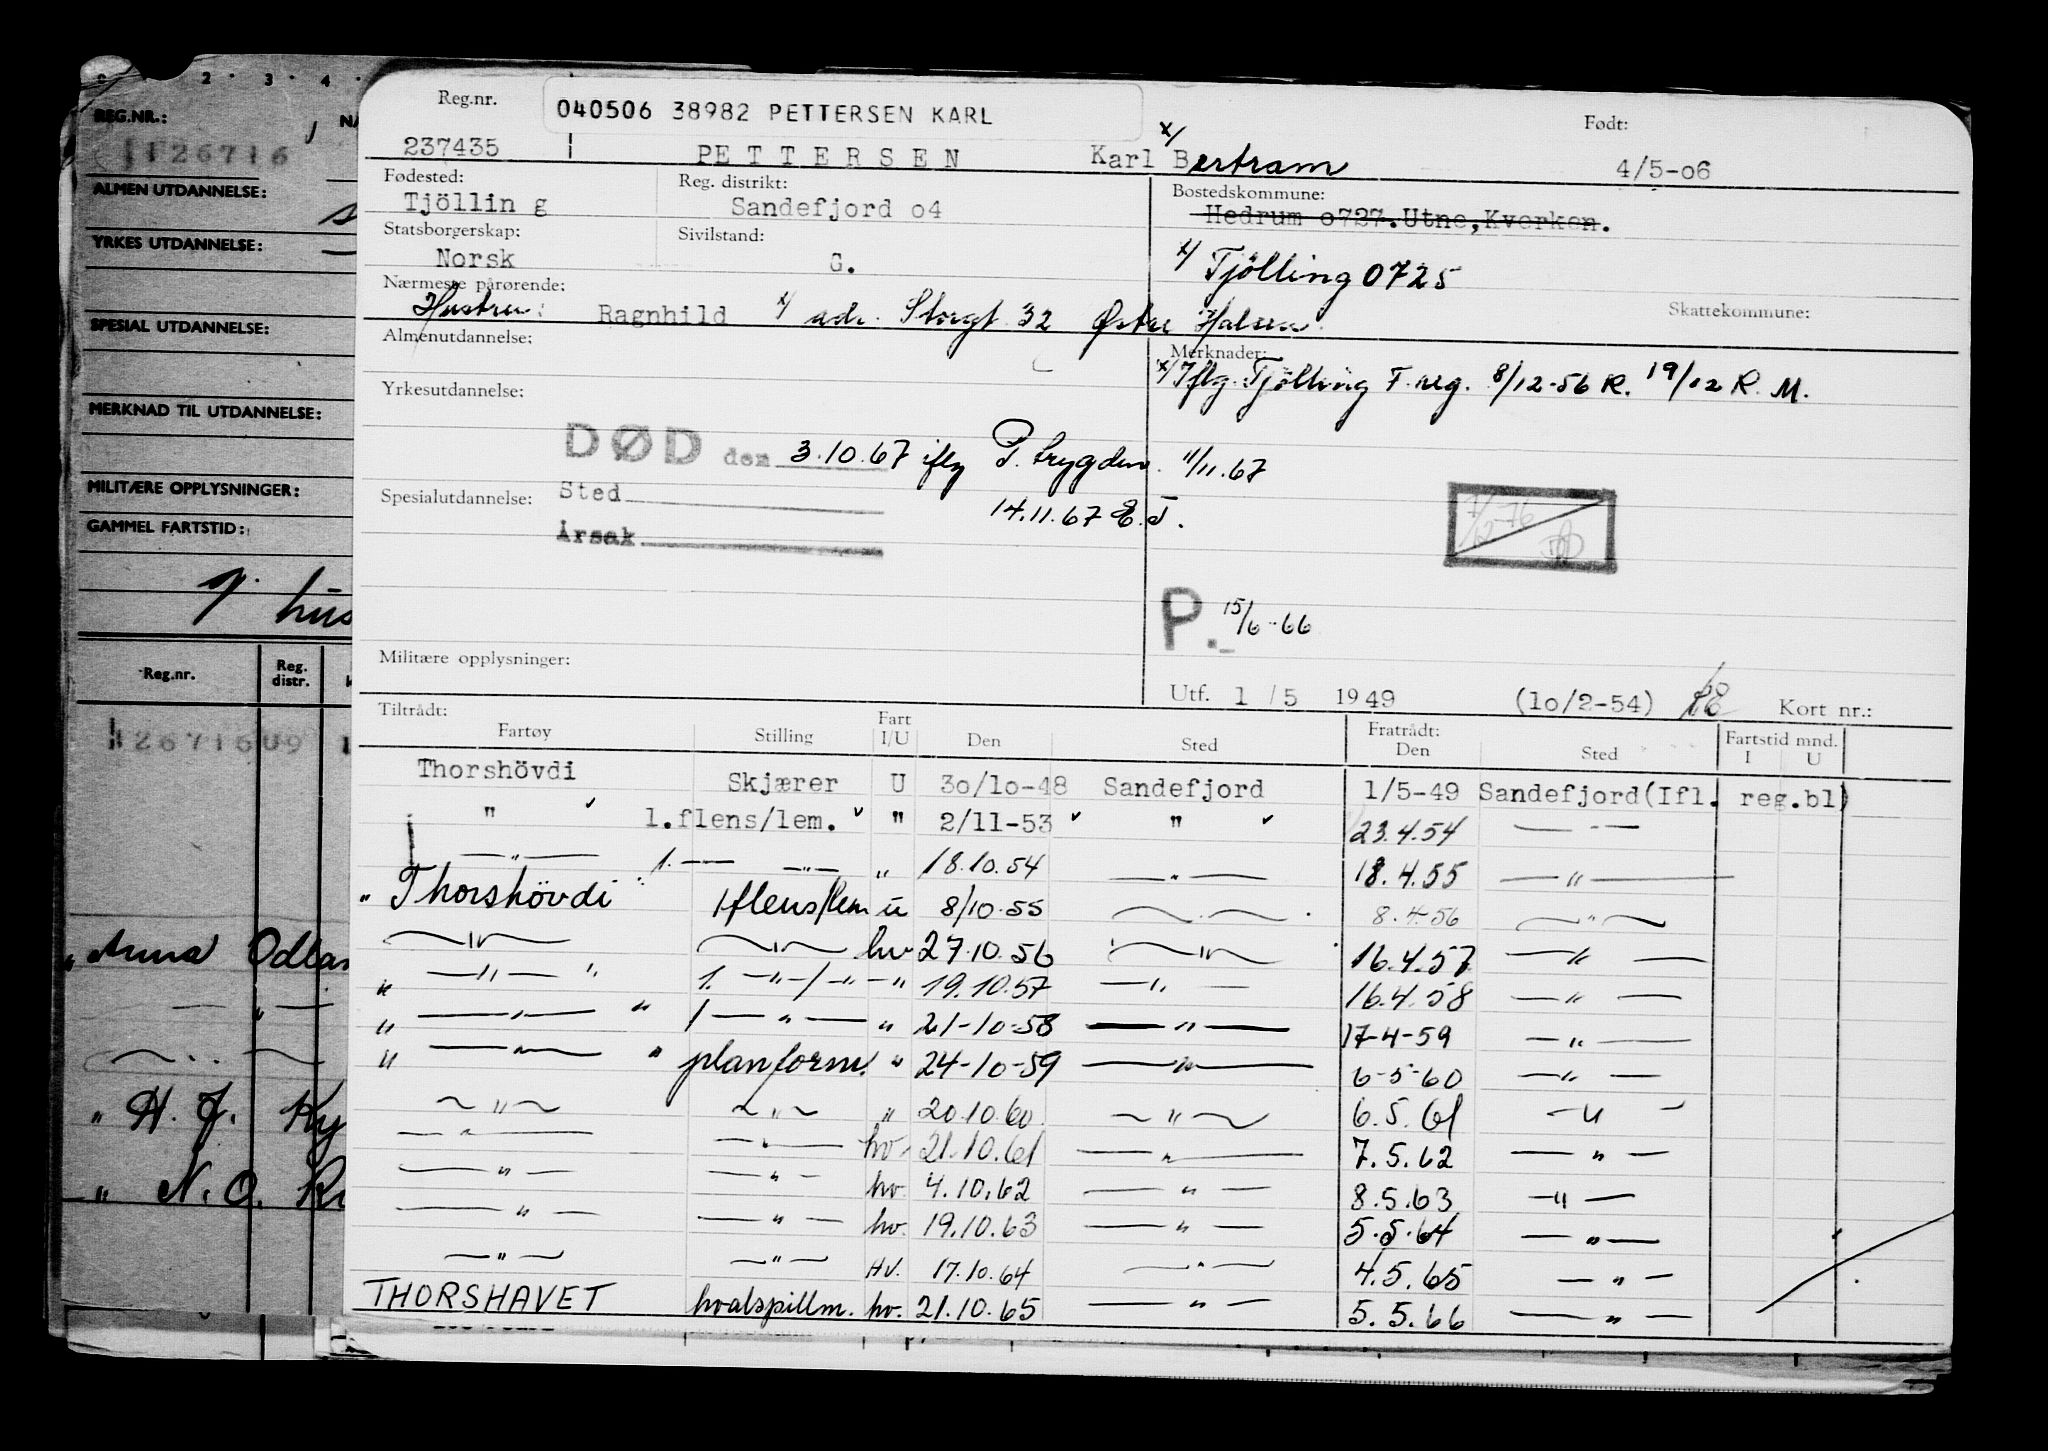 2 · 3 · 4
REG.NR.:
126716
ALMEN UTDANNELSE:
YRKES UTDANNELSE:
SPESIAL UTDANNELSE:
MERKNAD TIL UTDANNELSE:
MILITÆRE OPPLYSNINGER:
GAMMEL FARTSTID:
Reg.nr. Reg. distr.
12671609
" Anna Odlan
— " —
" H. J. Ky
" N. O.
Reg.nr. 040506 38982 PETTERSEN KARL Født:
237435 PETTERSEN Karl x/ Bertram 4/5-06
Fødested: Reg. distrikt: Bostedskommune:
Tjölling Sandefjord o4 Hedrum o727.Utne,Kverken.
Statsborgerskap: Sivilstand:
Norsk G. x/ Tjölling 0725
Nærmeste pårørende: Skattekommune:
Hustru: Ragnhild x/ adr. Storgt 32 Østre Halsen.
Almenutdannelse: Merknader:
x/ Iflg. Tjölling F. reg. 8/12-56 R. 19/12 R. M.
Yrkesutdannelse:
DØD den 3.10.67 iflg P. trygden. 11/11.67
Spesialutdannelse: Sted 14.11.67 E.T.
Årsak
P. 15/6-66
Militære opplysninger:
Utf. 1 / 5 1949 (lo/2-54) Kort nr.:
Tiltrådt: Fartøy Stilling Fart I/U Den Sted Fratrådt: Den Sted Fartstid mnd. I U
Thorshövdi Skjærer U 3o/lo-48 Sandefjord 1/5-49 Sandefjord(Ifl. reg.bl)
" 1.flens/lem. " 2/11-53 " 23.4.54 — " —
— " — 1. — " — " 18.10.54 — " — 18.4.55 — " —
" Thorshövdi 1flens/lem u 8/10-55 — " — 8.4-56 — " —
— " — — " — hv 27.10.56 — " — 16.4.57 — " —
" — " — " 1. — " — / — " — " 19.10.57 — " — 16.4.58 — " —
" — " — " 1 — " — " 21-10-58 — " — 17-4-59 — " —
" — " — " planform. " 24-10-59 — " — 6-5-60 — " —
— " — — " — " 20.10.60. — " — 6.5.61 — " —
— " — — " — hv. 21.10.61 — " — 7.5.62 — " —
— " — — " — hv. 4.10.62 — " — 8.5.63 — " —
— " — — " — hv. 19.10.63 — " — 5.5.64 — " —
— " — — " — HV. 17.10.64 — " — 4.5.65 — " —
THORSHAVET hvalspillm. hv. 21.10.65 — " — 5.5.66 — " —